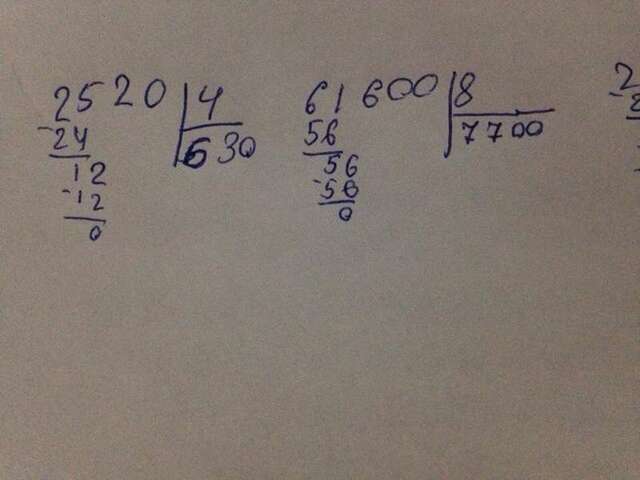 2520 | 4
-24 | 630
12
-12
0
61600 | 8
56 | 7700
56
-56
0
2
-